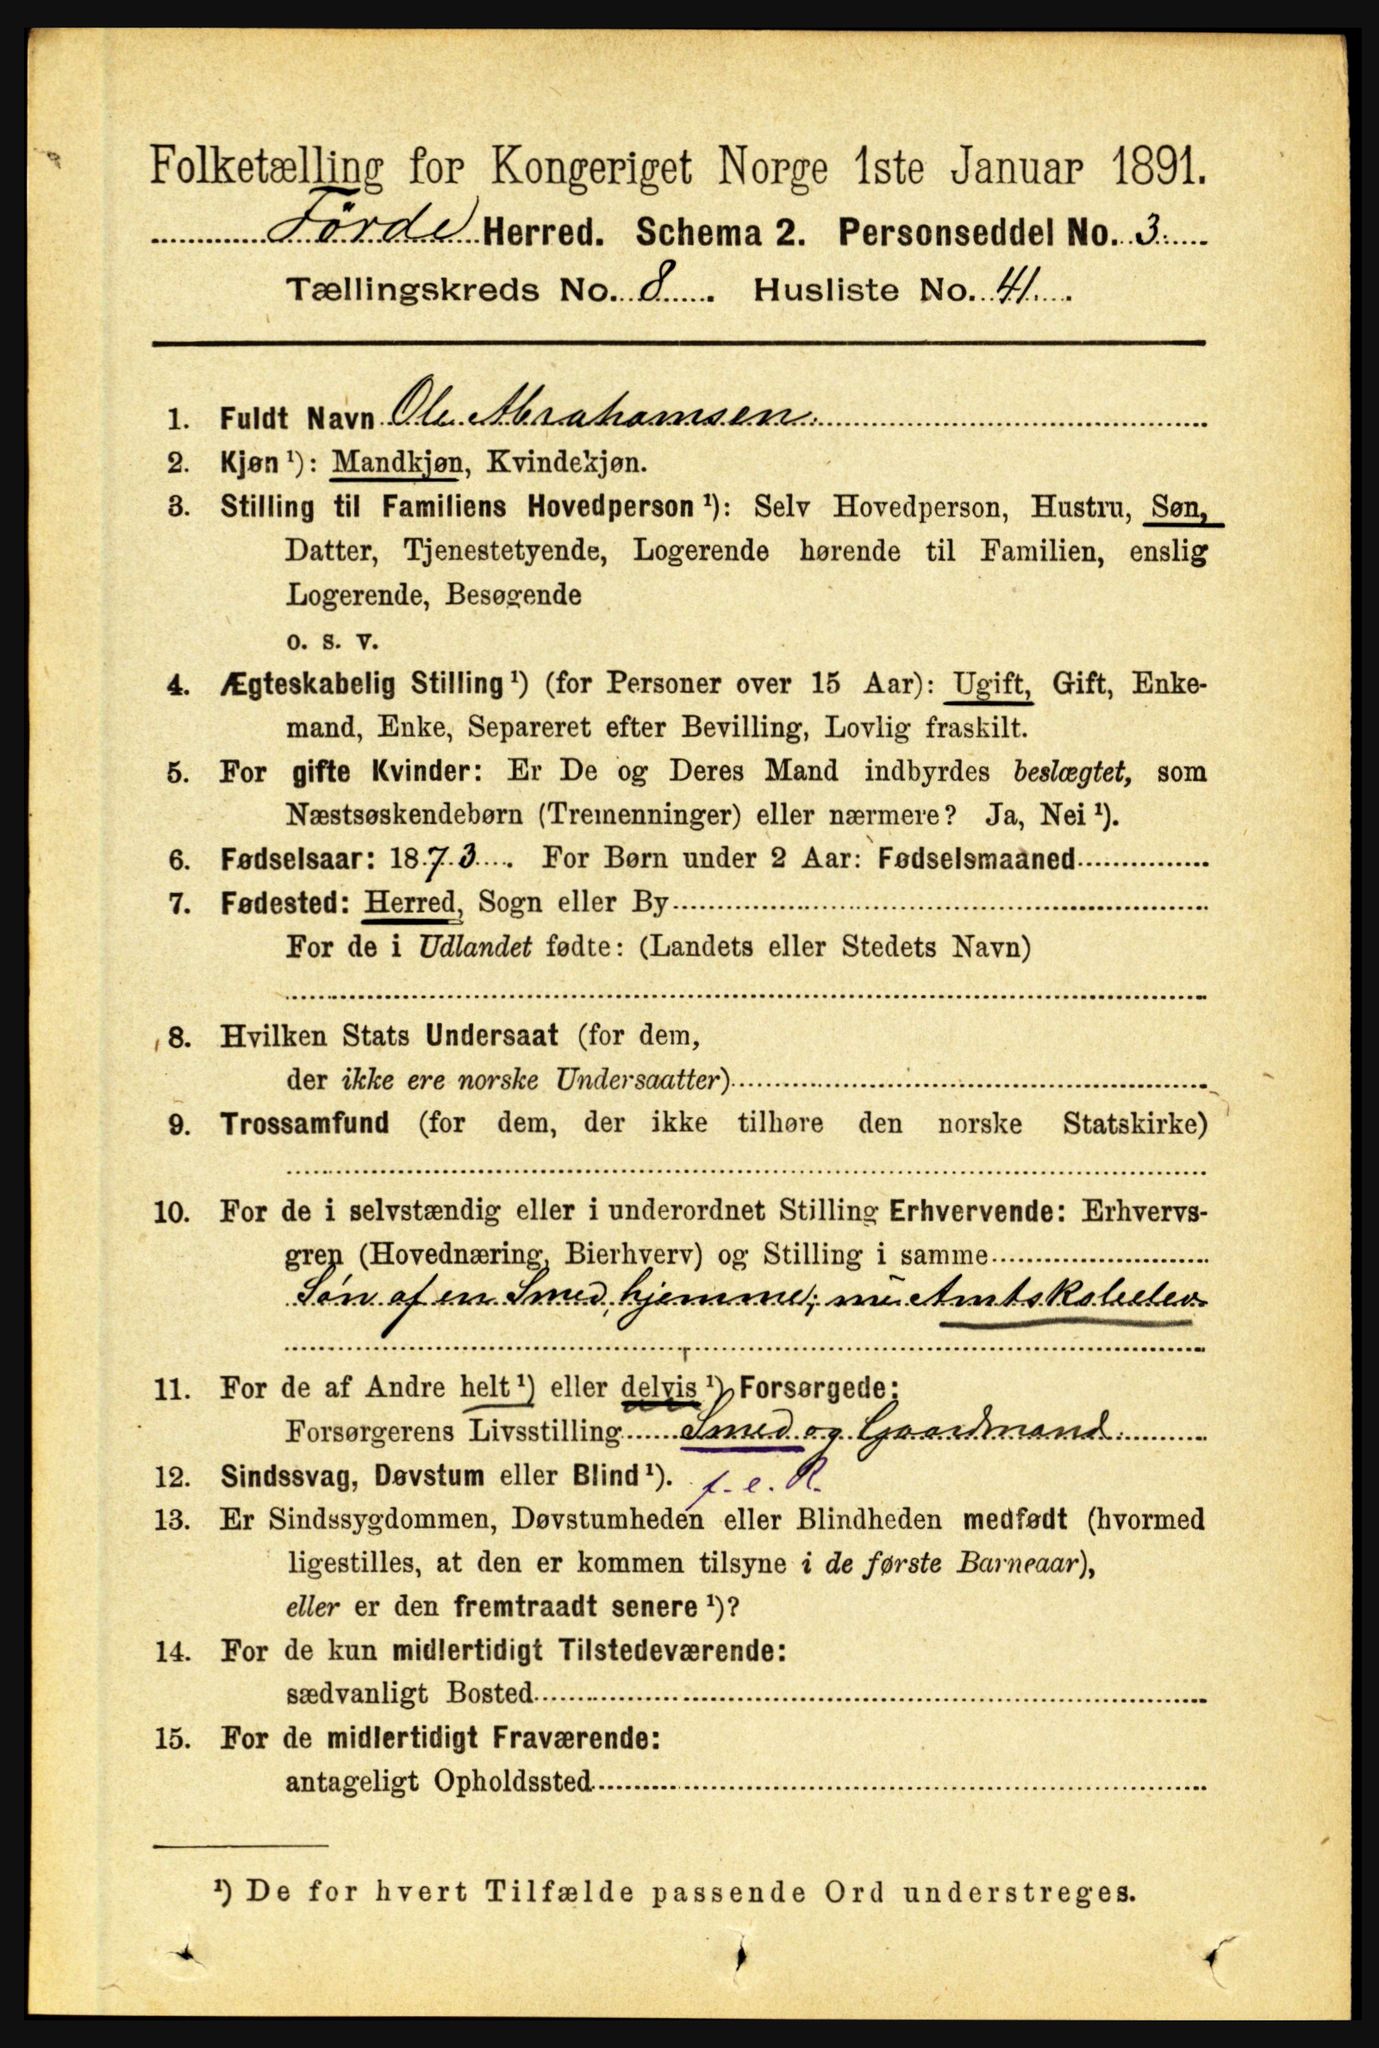 Folketælling for Kongeriget Norge 1ste Januar 1891.
Förde Herred. Schema 2. Personseddel No. 3.
Tællingskreds No. 8. Husliste No. 41.
1. Fuldt Navn Ole Abrahamsen
2. Kjøn¹): Mandkjøn, Kvindekjøn.
3. Stilling til Familiens Hovedperson¹): Selv Hovedperson, Hustru, Søn,
Datter, Tjenestetyende, Logerende hørende til Familien, enslig
Logerende, Besøgende
o. s. v.
4. Ægteskabelig Stilling¹) (for Personer over 15 Aar): Ugift, Gift, Enke-
mand, Enke, Separeret efter Bevilling, Lovlig fraskilt.
5. For gifte Kvinder: Er De og Deres Mand indbyrdes beslægtet, som
Næstsøskendebørn (Tremenninger) eller nærmere? Ja, Nei¹).
6. Fødselsaar: 1873. For Børn under 2 Aar: Fødselsmaaned
7. Fødested: Herred, Sogn eller By
For de i Udlandet fødte: (Landets eller Stedets Navn)
8. Hvilken Stats Undersaat (for dem,
der ikke ere norske Undersaatter)
9. Trossamfund (for dem, der ikke tilhøre den norske Statskirke)
10. For de i selvstændig eller i underordnet Stilling Erhvervende: Erhvervs-
gren (Hovednæring, Bierhverv) og Stilling i samme
Søn af en Smed, hjemme; nu Amtskoleelev
11. For de af Andre helt¹) eller delvis¹) Forsørgede:
Forsørgerens Livsstilling Smed og Gaardmand.
12. Sindssvag, Døvstum eller Blind¹). f. e. R.
13. Er Sindssygdommen, Døvstumheden eller Blindheden medfødt (hvormed
ligestilles, at den er kommen tilsyne i de første Barneaar),
eller er den fremtraadt senere¹)?
14. For de kun midlertidigt Tilstedeværende:
sædvanligt Bosted
15. For de midlertidigt Fraværende:
antageligt Opholdssted
¹) De for hvert Tilfælde passende Ord understreges.